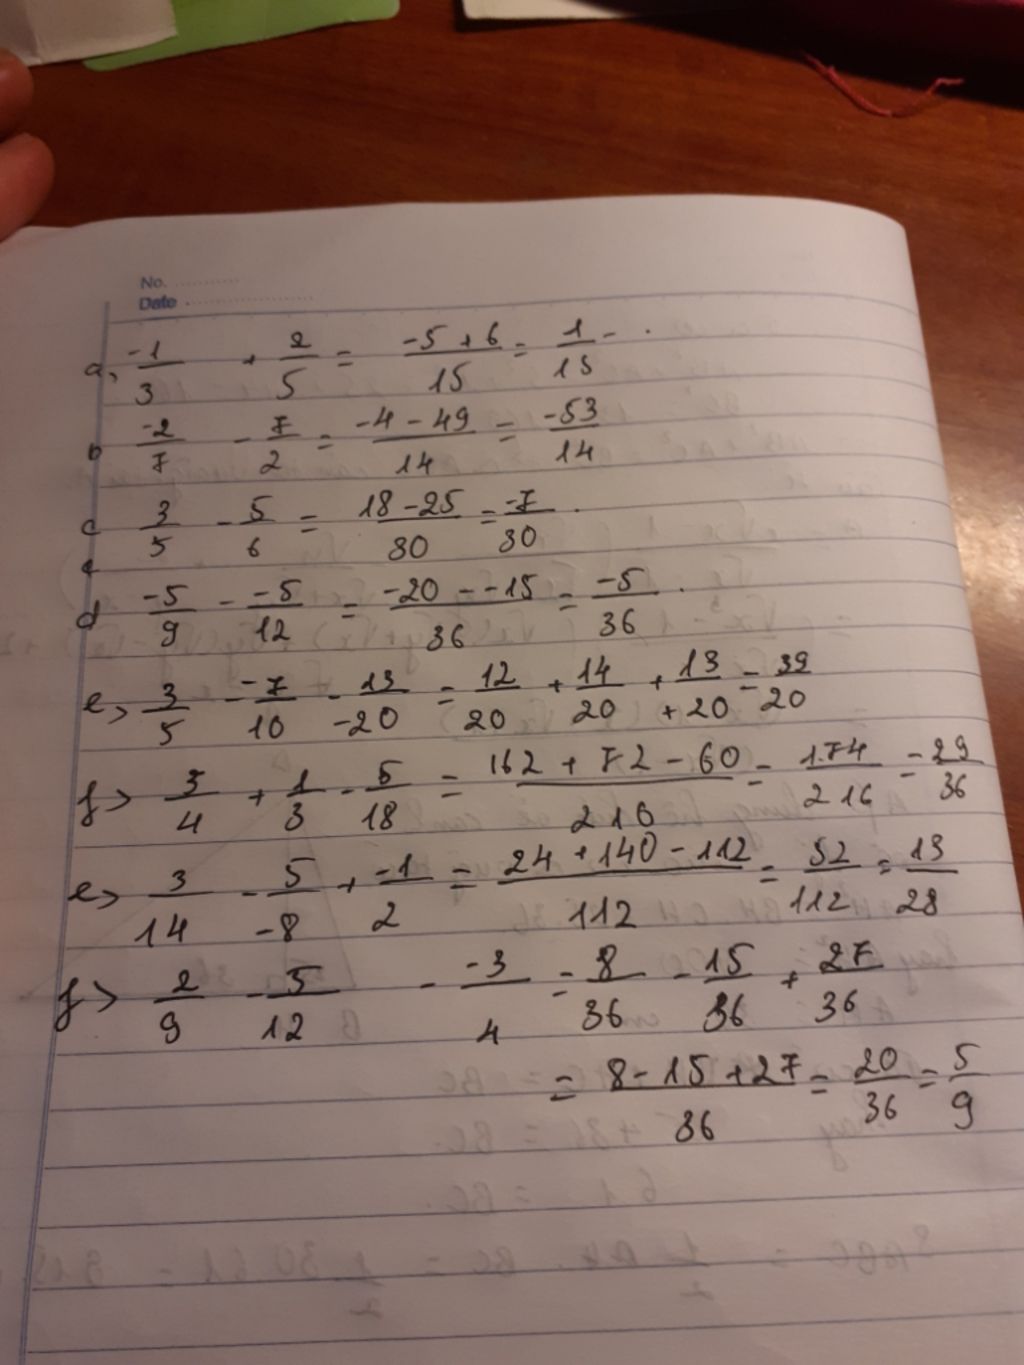 No. ............
Date ......................
a, -1/3 + 2/5 = (-5 + 6)/15 = 1/15 - .
b -2/7 - 7/2 = (-4 - 49)/14 = -53/14
c 3/5 - 5/6 = (18 - 25)/30 = -7/30 .
d -5/9 - -5/12 = (-20 - -15)/36 = -5/36 .
e, 3/5 - -7/10 - 13/-20 = 12/20 + 14/20 + 13/+20 = 39/20
f> 3/4 + 1/3 - 5/18 = (162 + 72 - 60)/216 = 174/216 = 29/36
e> 3/14 - 5/-8 + -1/2 = (24 + 140 - 112)/112 = 52/112 = 13/28
f> 2/9 - 5/12 - -3/4 = 8/36 - 15/36 + 27/36
= (8 - 15 + 27)/36 = 20/36 = 5/9